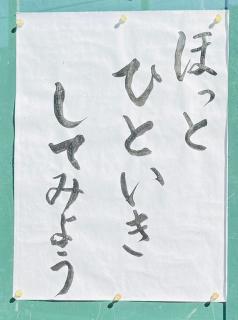 ほっと
ひといき
してみよう